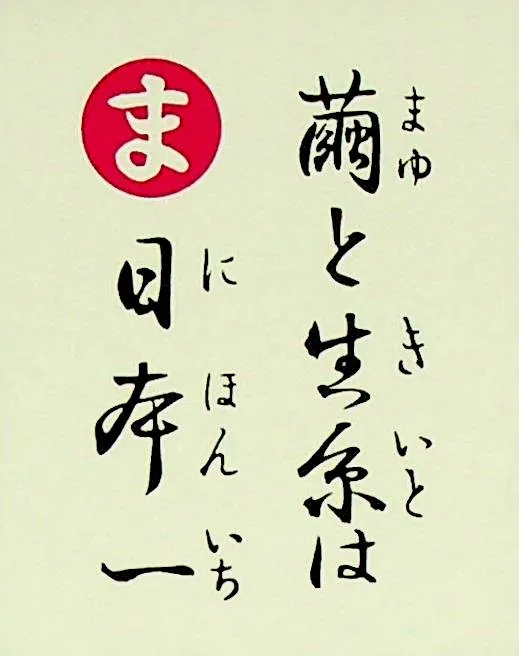 繭と生糸は
まゆ きいと
ま
日本一
にほんいち